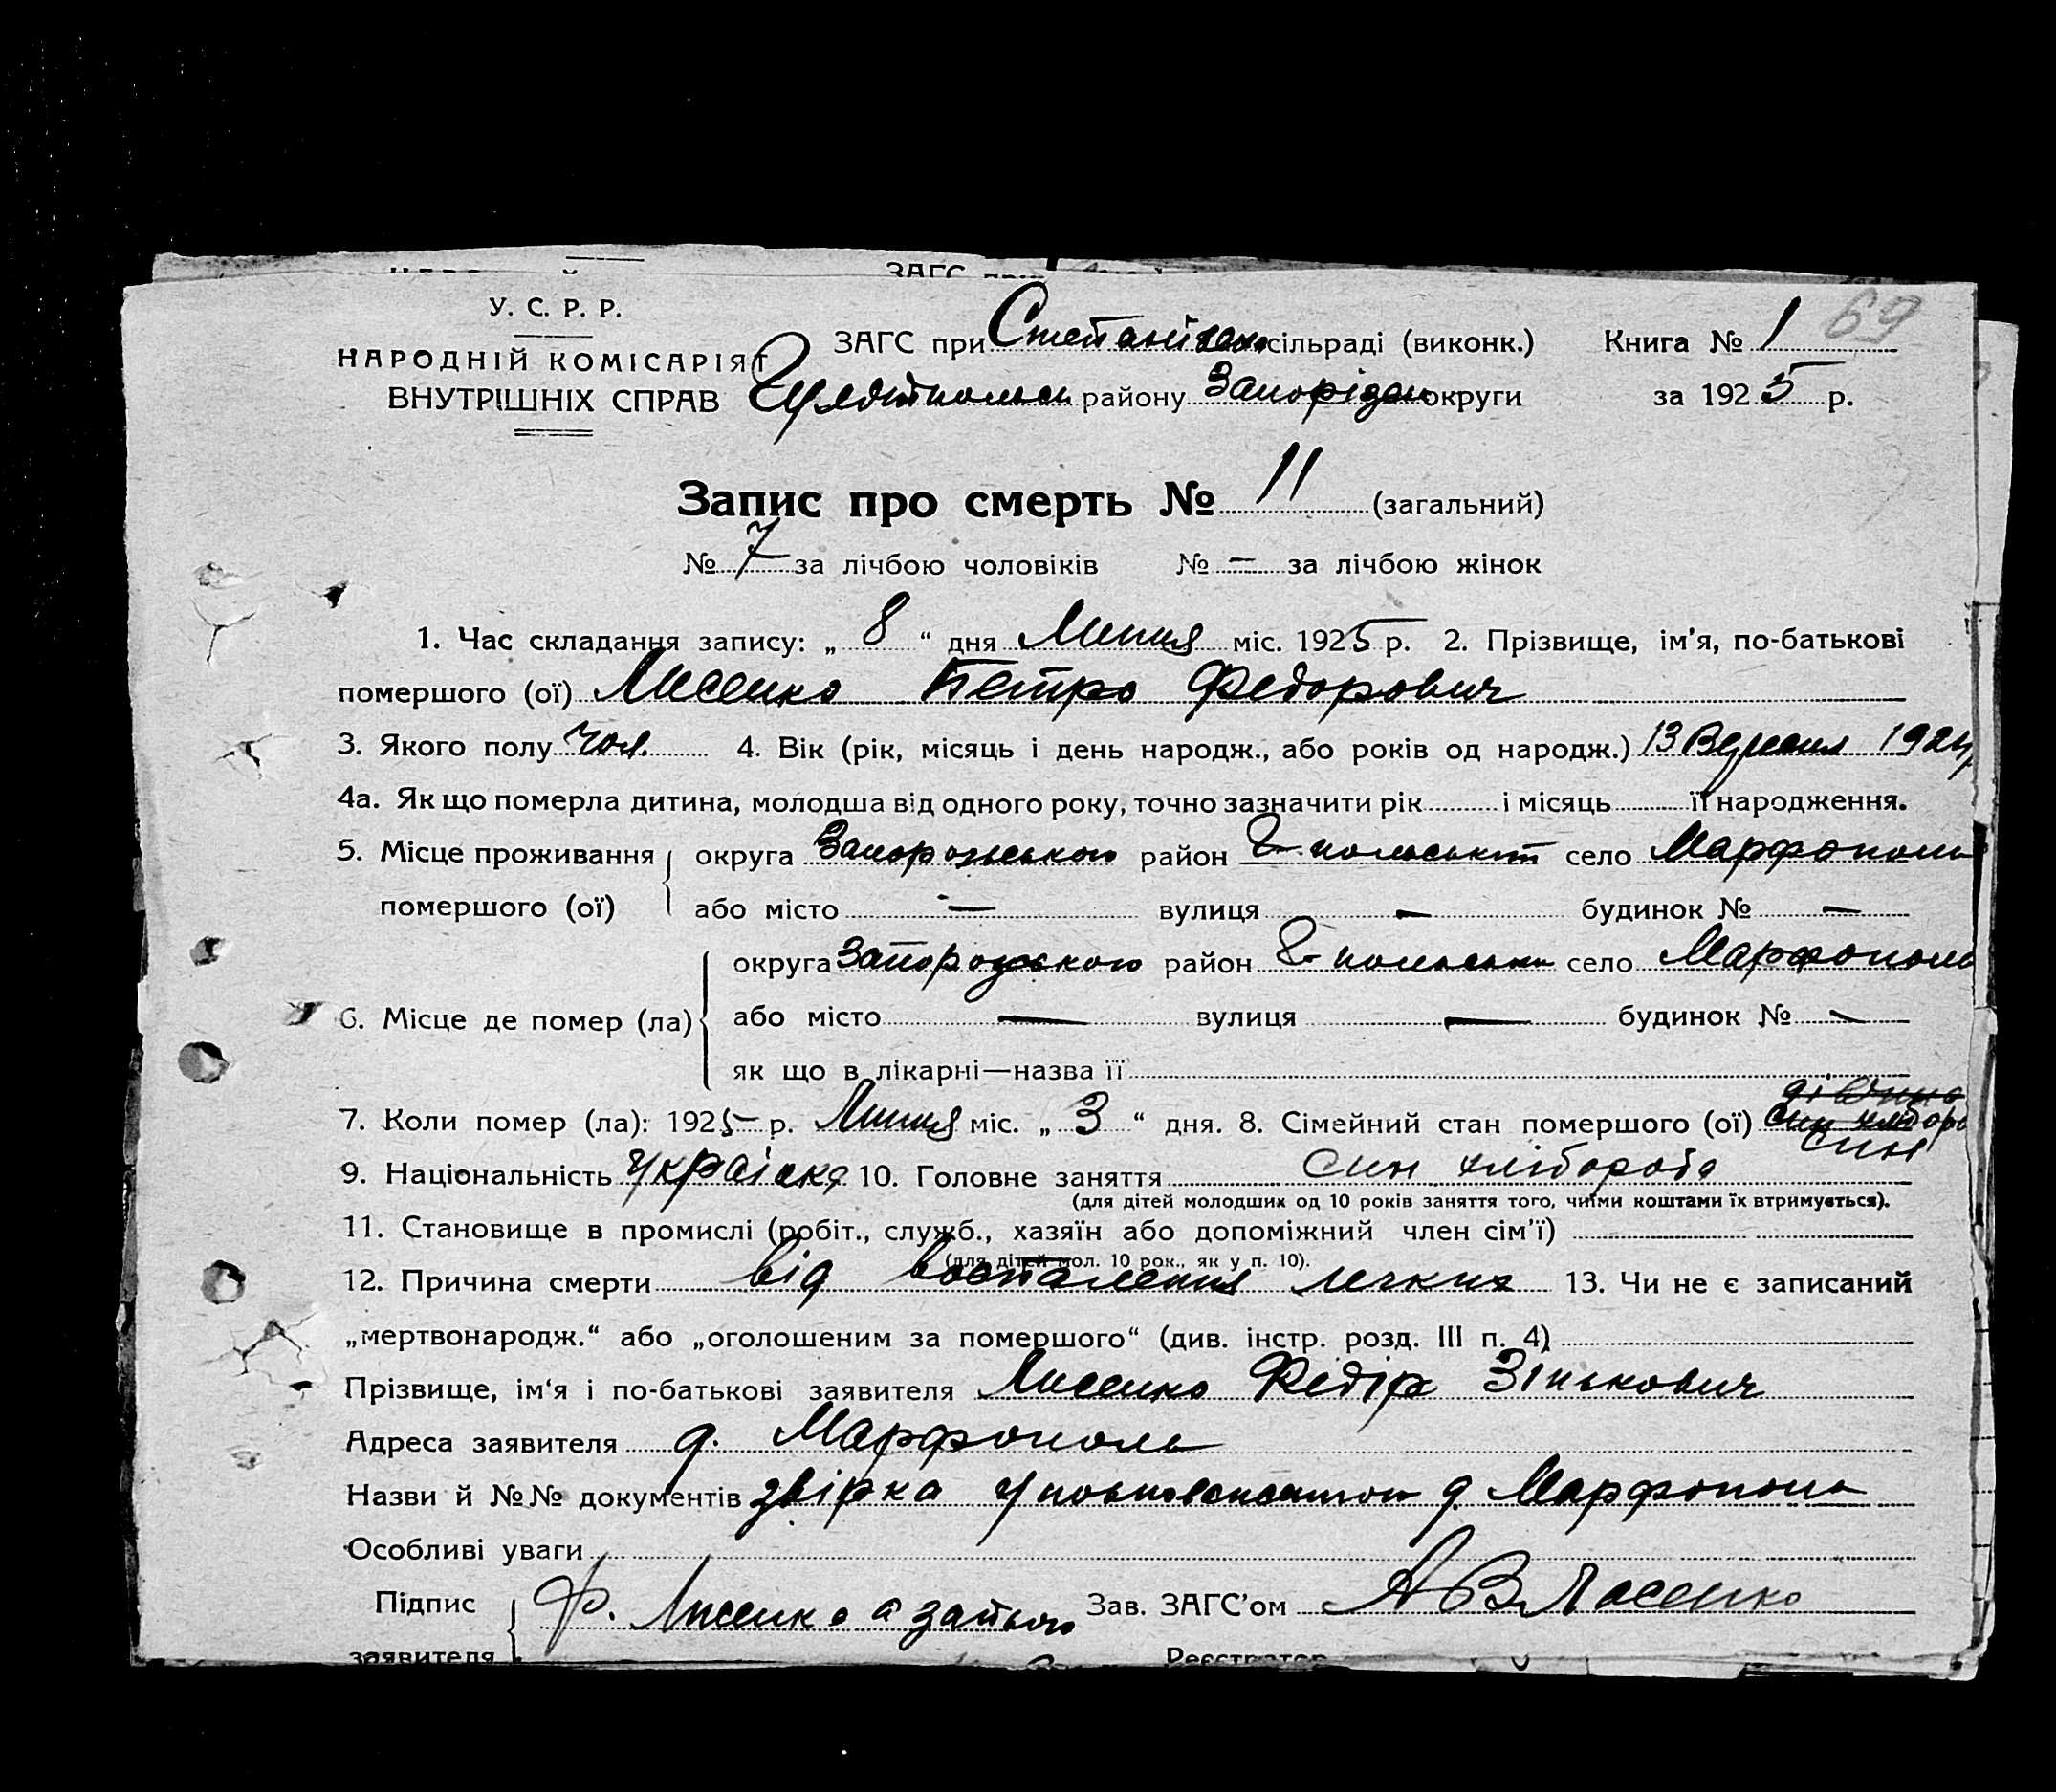 У. С. Р. Р.
НАРОДНІЙ КОМІСАРІЯТ
ВНУТРІШНІХ СПРАВ
ЗАГС при сільраді (виконк.) Книга № 1 69
району Запорізьк округи за 1925 р.
Запис про смерть № 11 (загальний)
№ 7 за лічбою чоловіків № — за лічбою жінок
1. Час складання запису: „ 8 “ дня Липня міс. 1925 р. 2. Прізвище, ім'я, по-батькові
помершого (ої) Лисенко Петро Федорович
3. Якого полу чол. 4. Вік (рік, місяць і день народж., або років од народж.) 13 Вересня 1924
4а. Як що померла дитина, молодша від одного року, точно зазначити рік і місяць її народження.
5. Місце проживання округа Запорозського район село Марфополь
помершого (ої) або місто — вулиця — будинок № —
округа Запорозького район село Марфополь
6. Місце де помер (ла) або місто — вулиця — будинок № —
як що в лікарні—назва її
7. Коли помер (ла): 1925 р. Липня міс. „ 3 “ дня. 8. Сімейний стан помершого (ої) син
9. Національність 10. Головне заняття син хлібороба
(для дітей молодших од 10 років заняття того, чиїми коштами їх втримується).
11. Становище в промислі (робіт., служб., хазяїн або допоміжний член сім'ї)
(для дітей мол. 10 рок., як у п. 10).
12. Причина смерти від воспаления легких 13. Чи не є записаний
„мертвонародж.“ або „оголошеним за помершого“ (див. інстр. розд. III п. 4)
Прізвище, ім'я і по-батькові заявителя Лисенко Федір Зінькович
Адреса заявителя д. Марфополь
Назви й №№ документів звірка д. Марфополь
Особливі уваги
Підпис Ф. Лисенко а Зав. ЗАГС'ом
заявителя Реєстратор